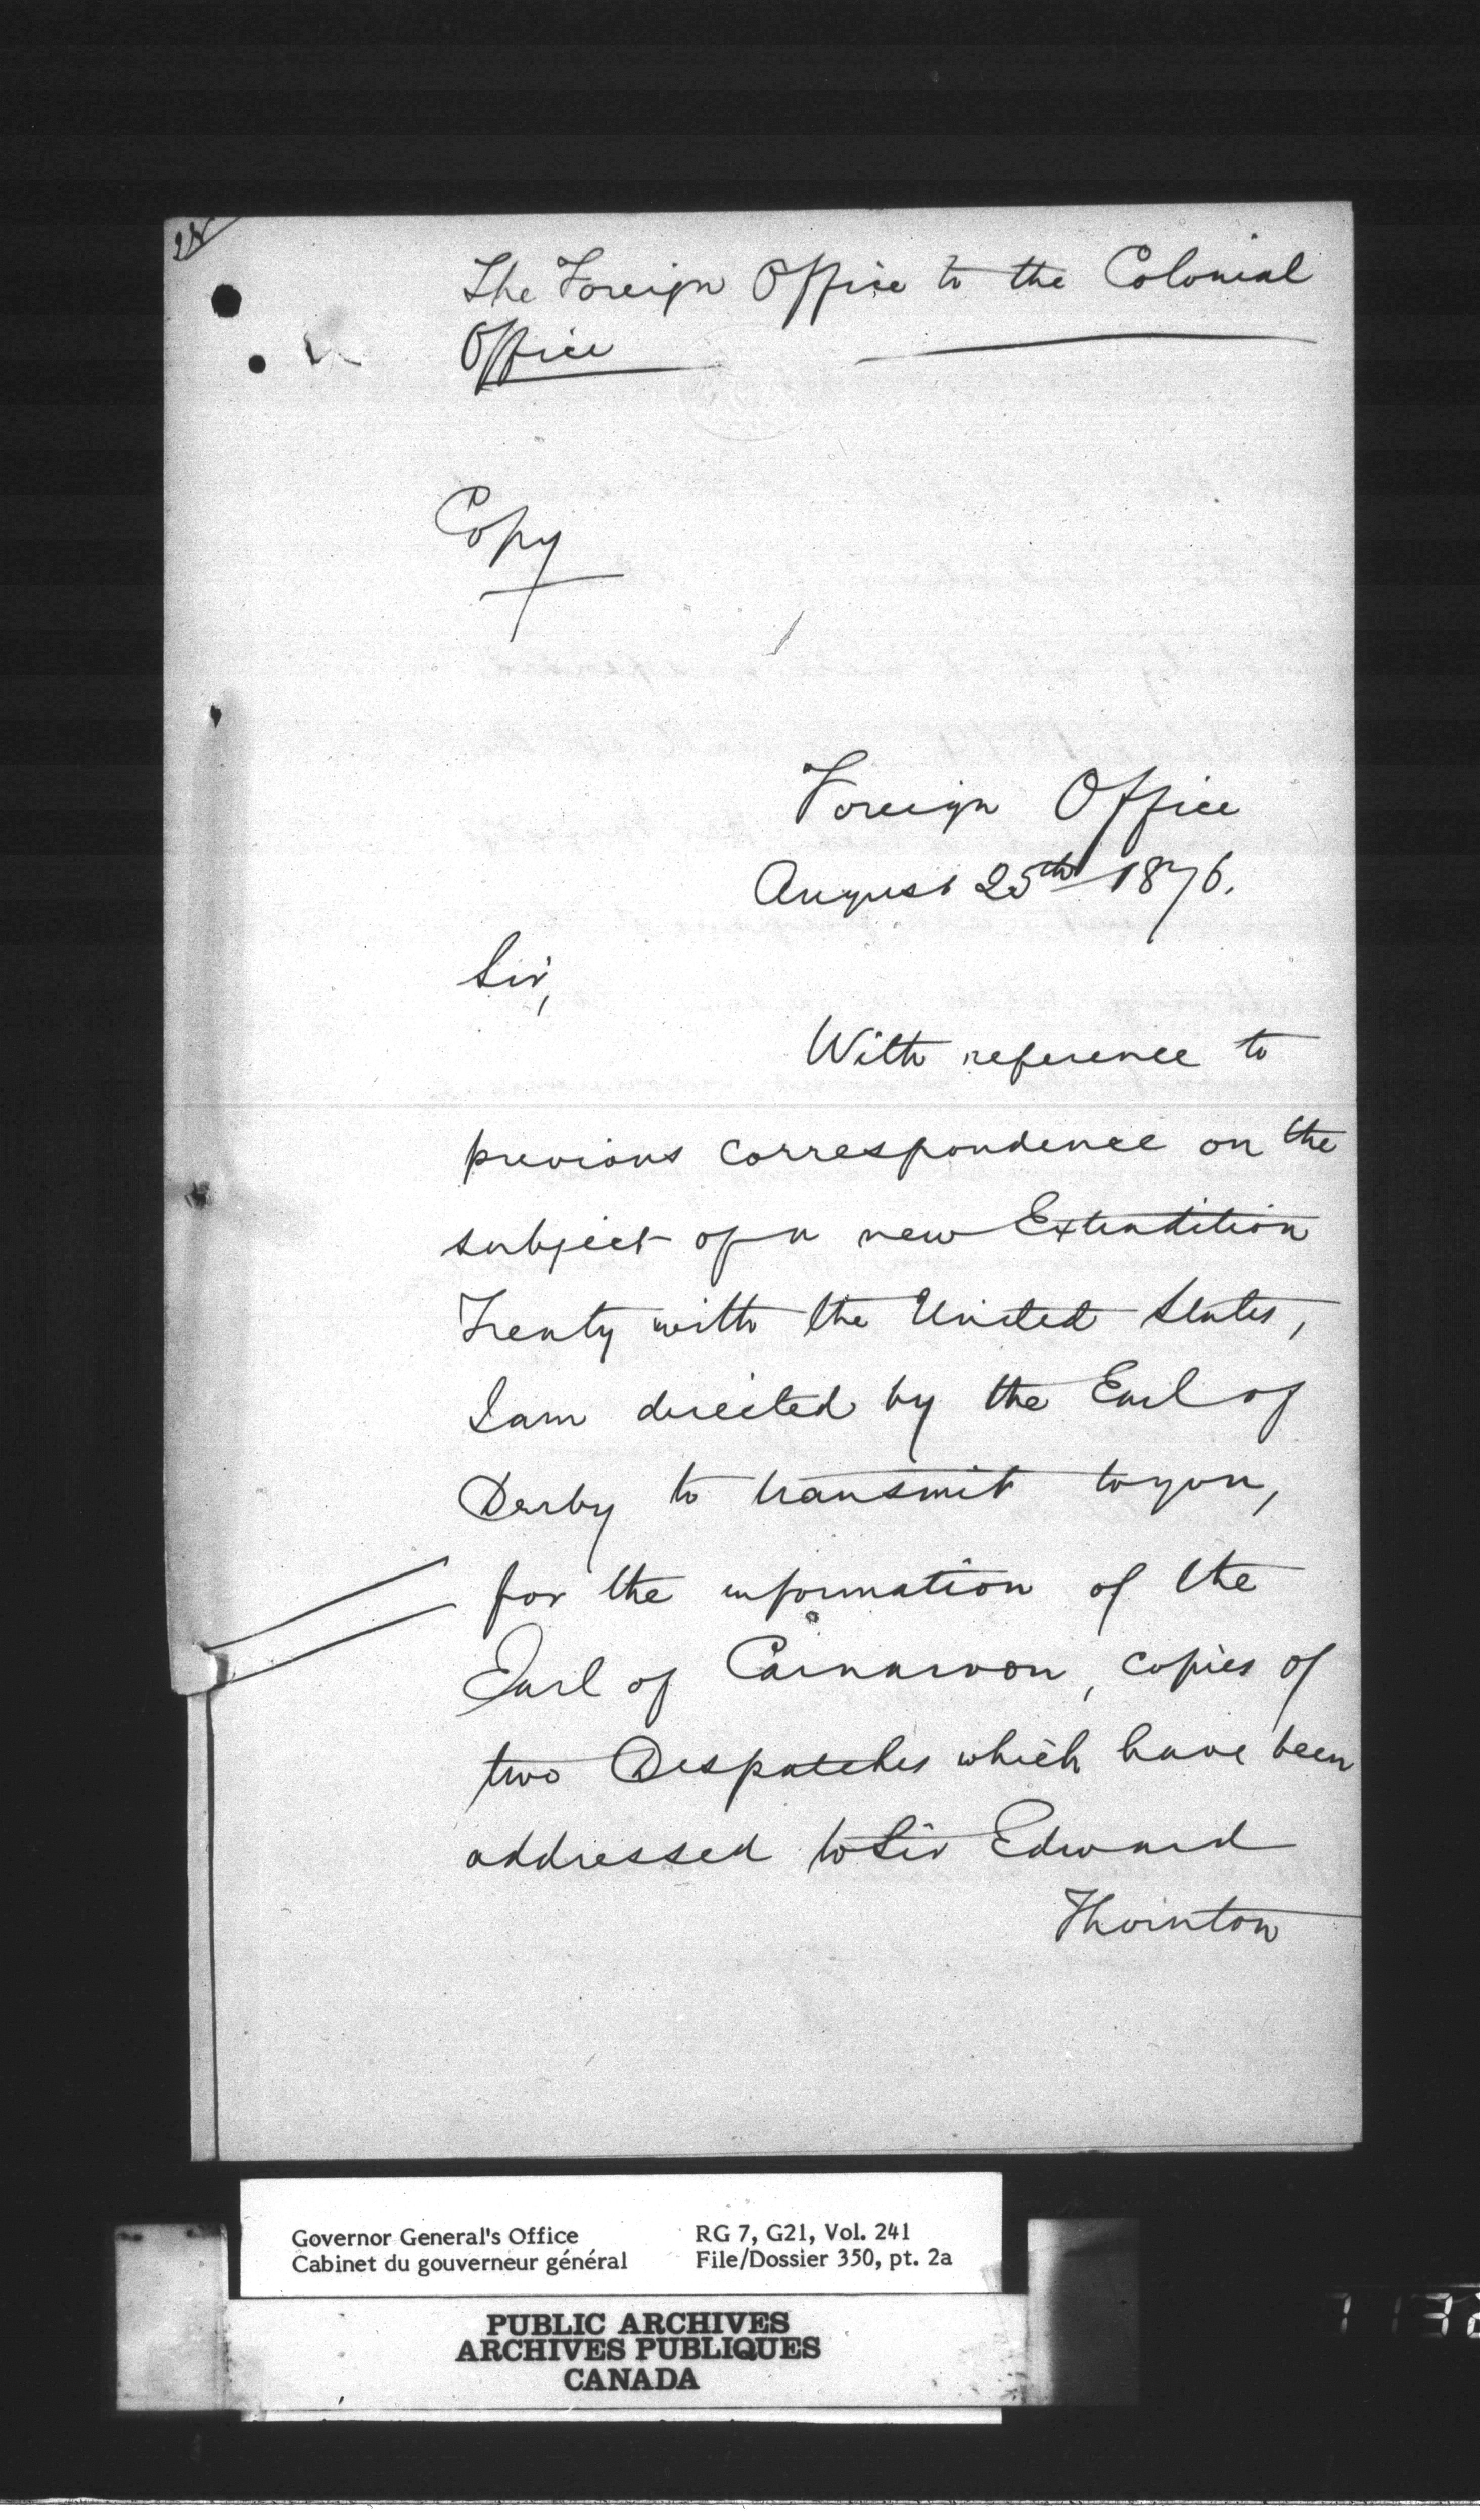 The Foreign Office to the Colonial
Office
Copy
Foreign Office
August 25th 1876.
Sir,
With reference to
previous correspondence on the
subject of a new Extradition
Treaty with the United States,
I am directed by the Earl of
Derby to transmit to you,
for the information of the
Earl of Carnarvon, copies of
two Despatches which have been
addressed to Sir Edward
Thornton
Governor General's Office
Cabinet du gouverneur général
RG 7, G21, Vol. 241
File/Dossier 350, pt. 2a
PUBLIC ARCHIVES
ARCHIVES PUBLIQUES
CANADA